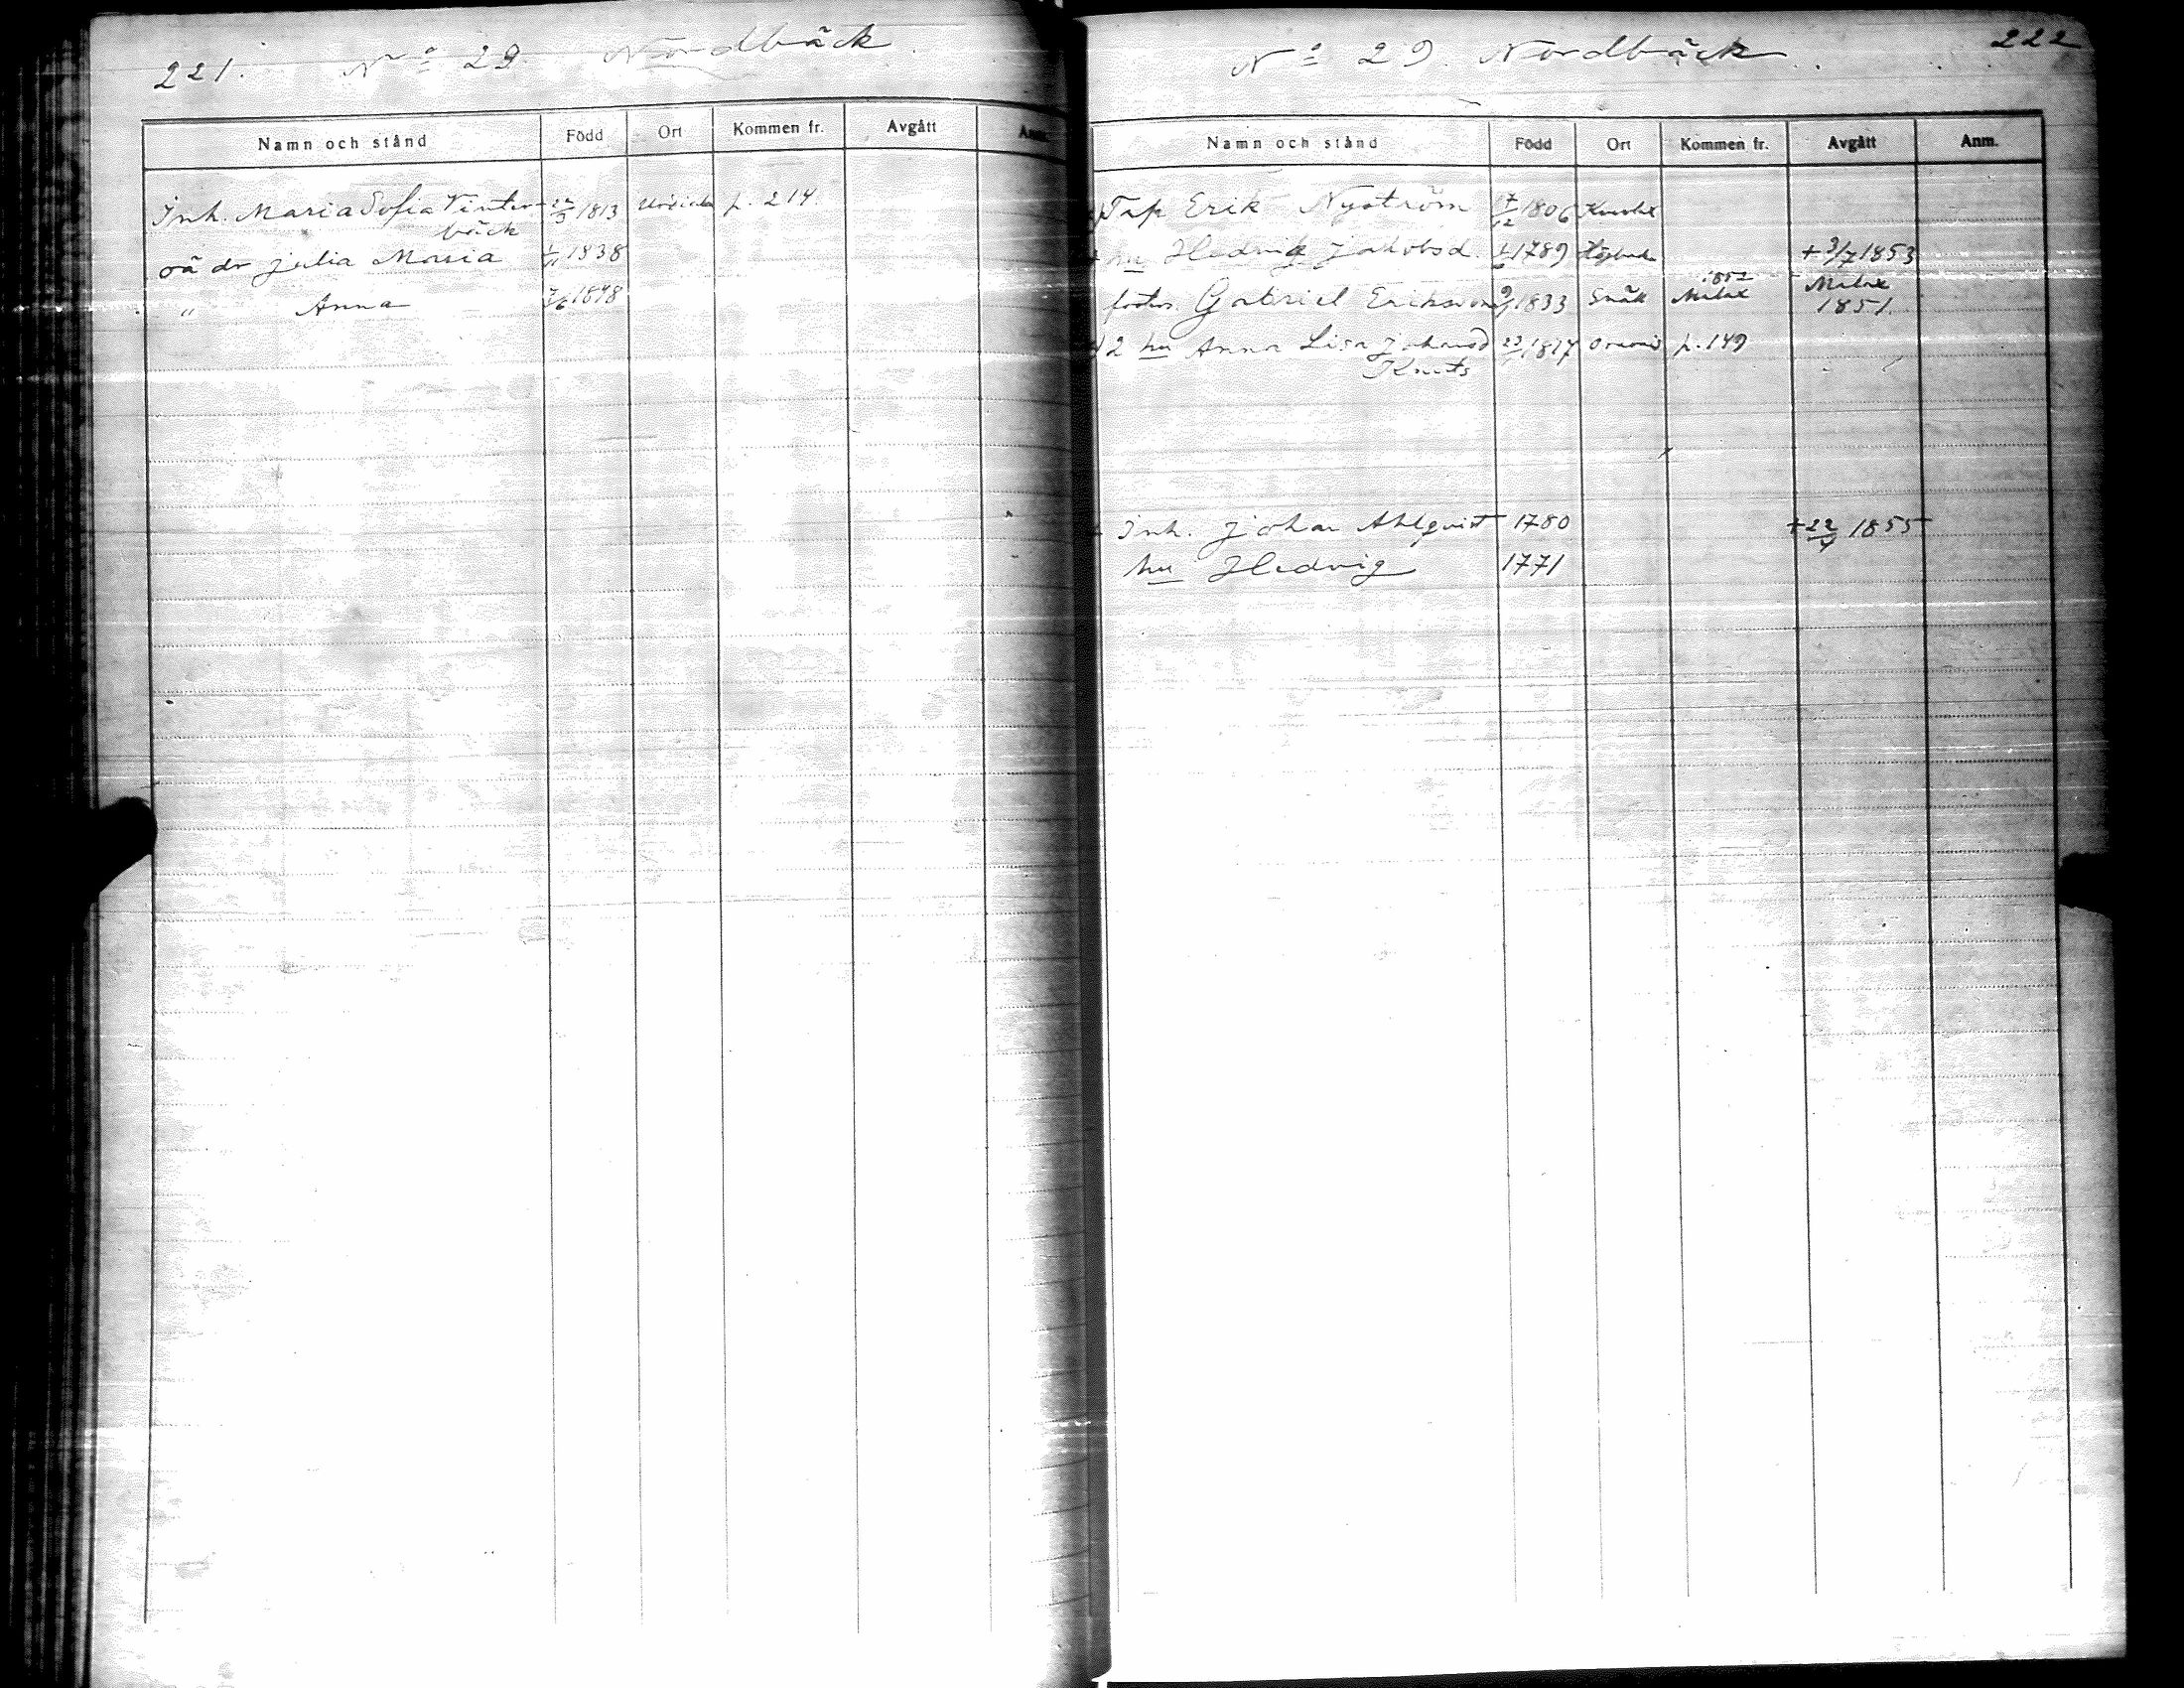 221. No 29. Nordbäck.
Namn och stånd Född Ort Kommen fr. Avgått Anm.
Inh. Maria Sofia Vinter- 22/3 1813 p. 214.
bäck
oä dr Julia Maria 1/11 1838
" Anna 7/6 1848
No 29. Nordbäck. 222
Namn och stånd Född Ort Kommen fr. Avgått Anm.
Tap Erik Nyström 17/12 1806
hu Hedvig Jakobsd. 1789 + 3/7 1853
1852
fosters. Gabriel Eriksson 1833 Malax Malax
1851
2 hu Anna Lisa Johansd 1817 p. 149
Knuts
+ Inh. Johan Ahlqvist 1780 + 22/4 1855
hu Hedvig 1771